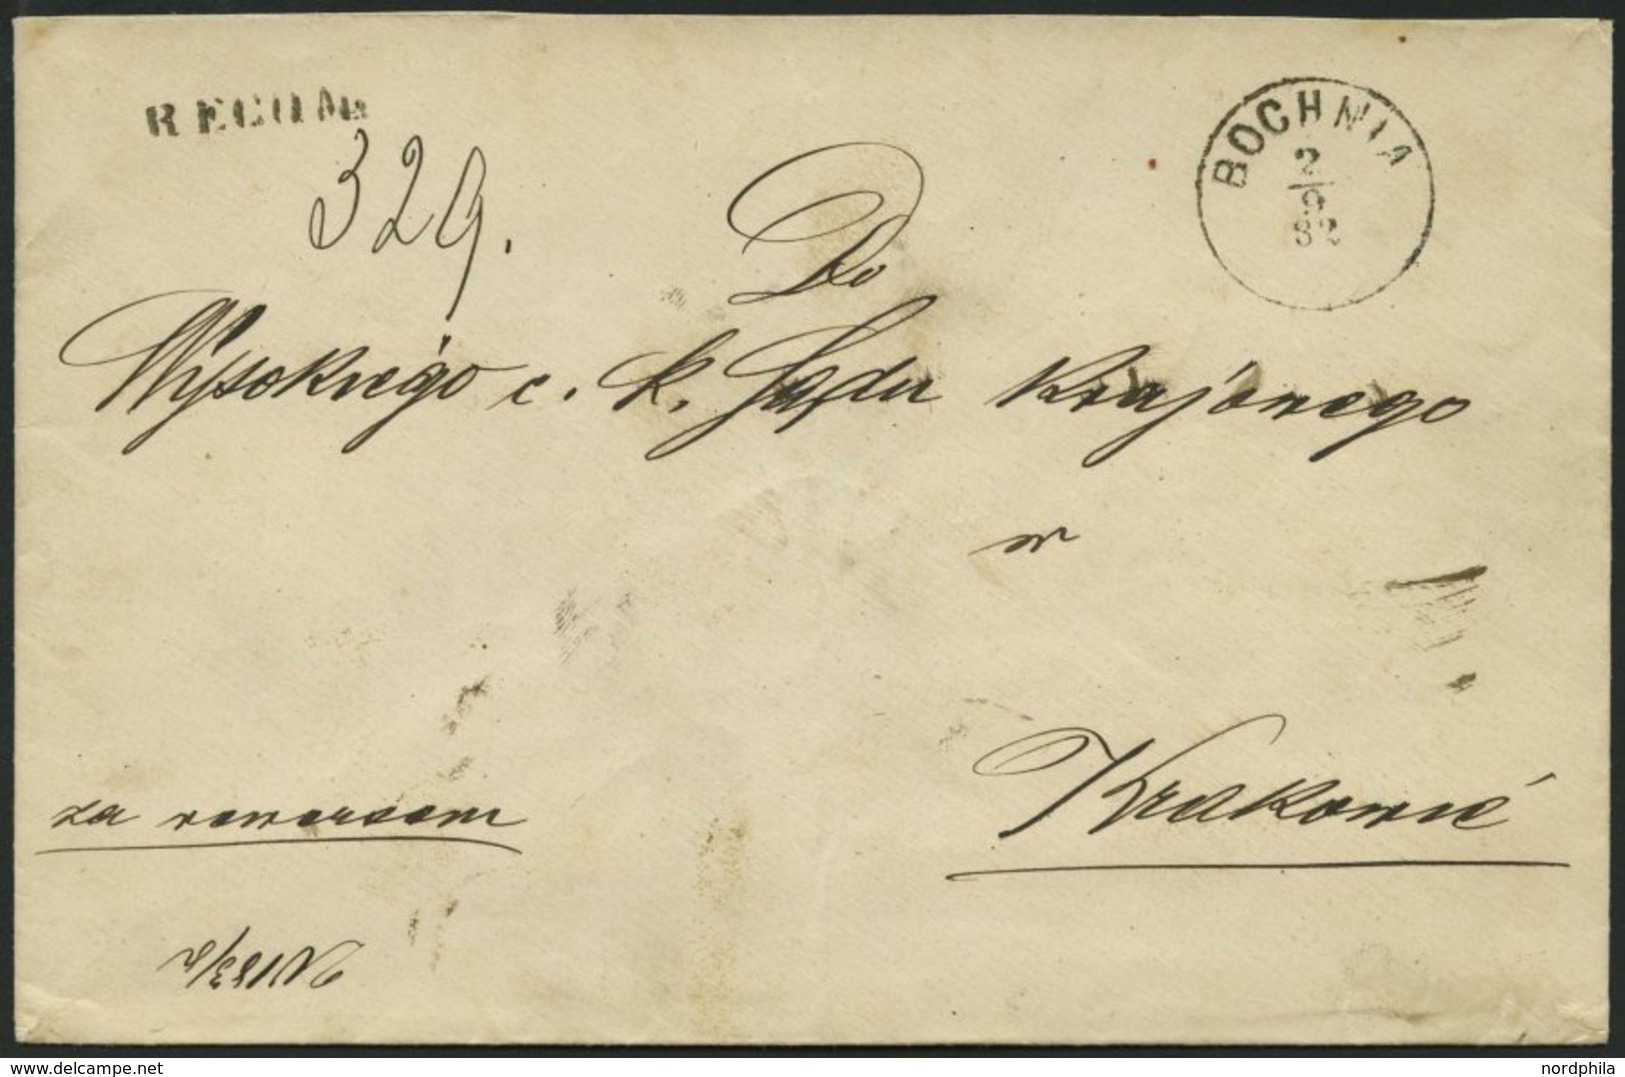 RECOM
BOCHNIA
2/9
82
329.
Do
Wysokiego c. k. Sądu Krajowego
w
Krakowie
za rewersem
delcampe.net
nordphila